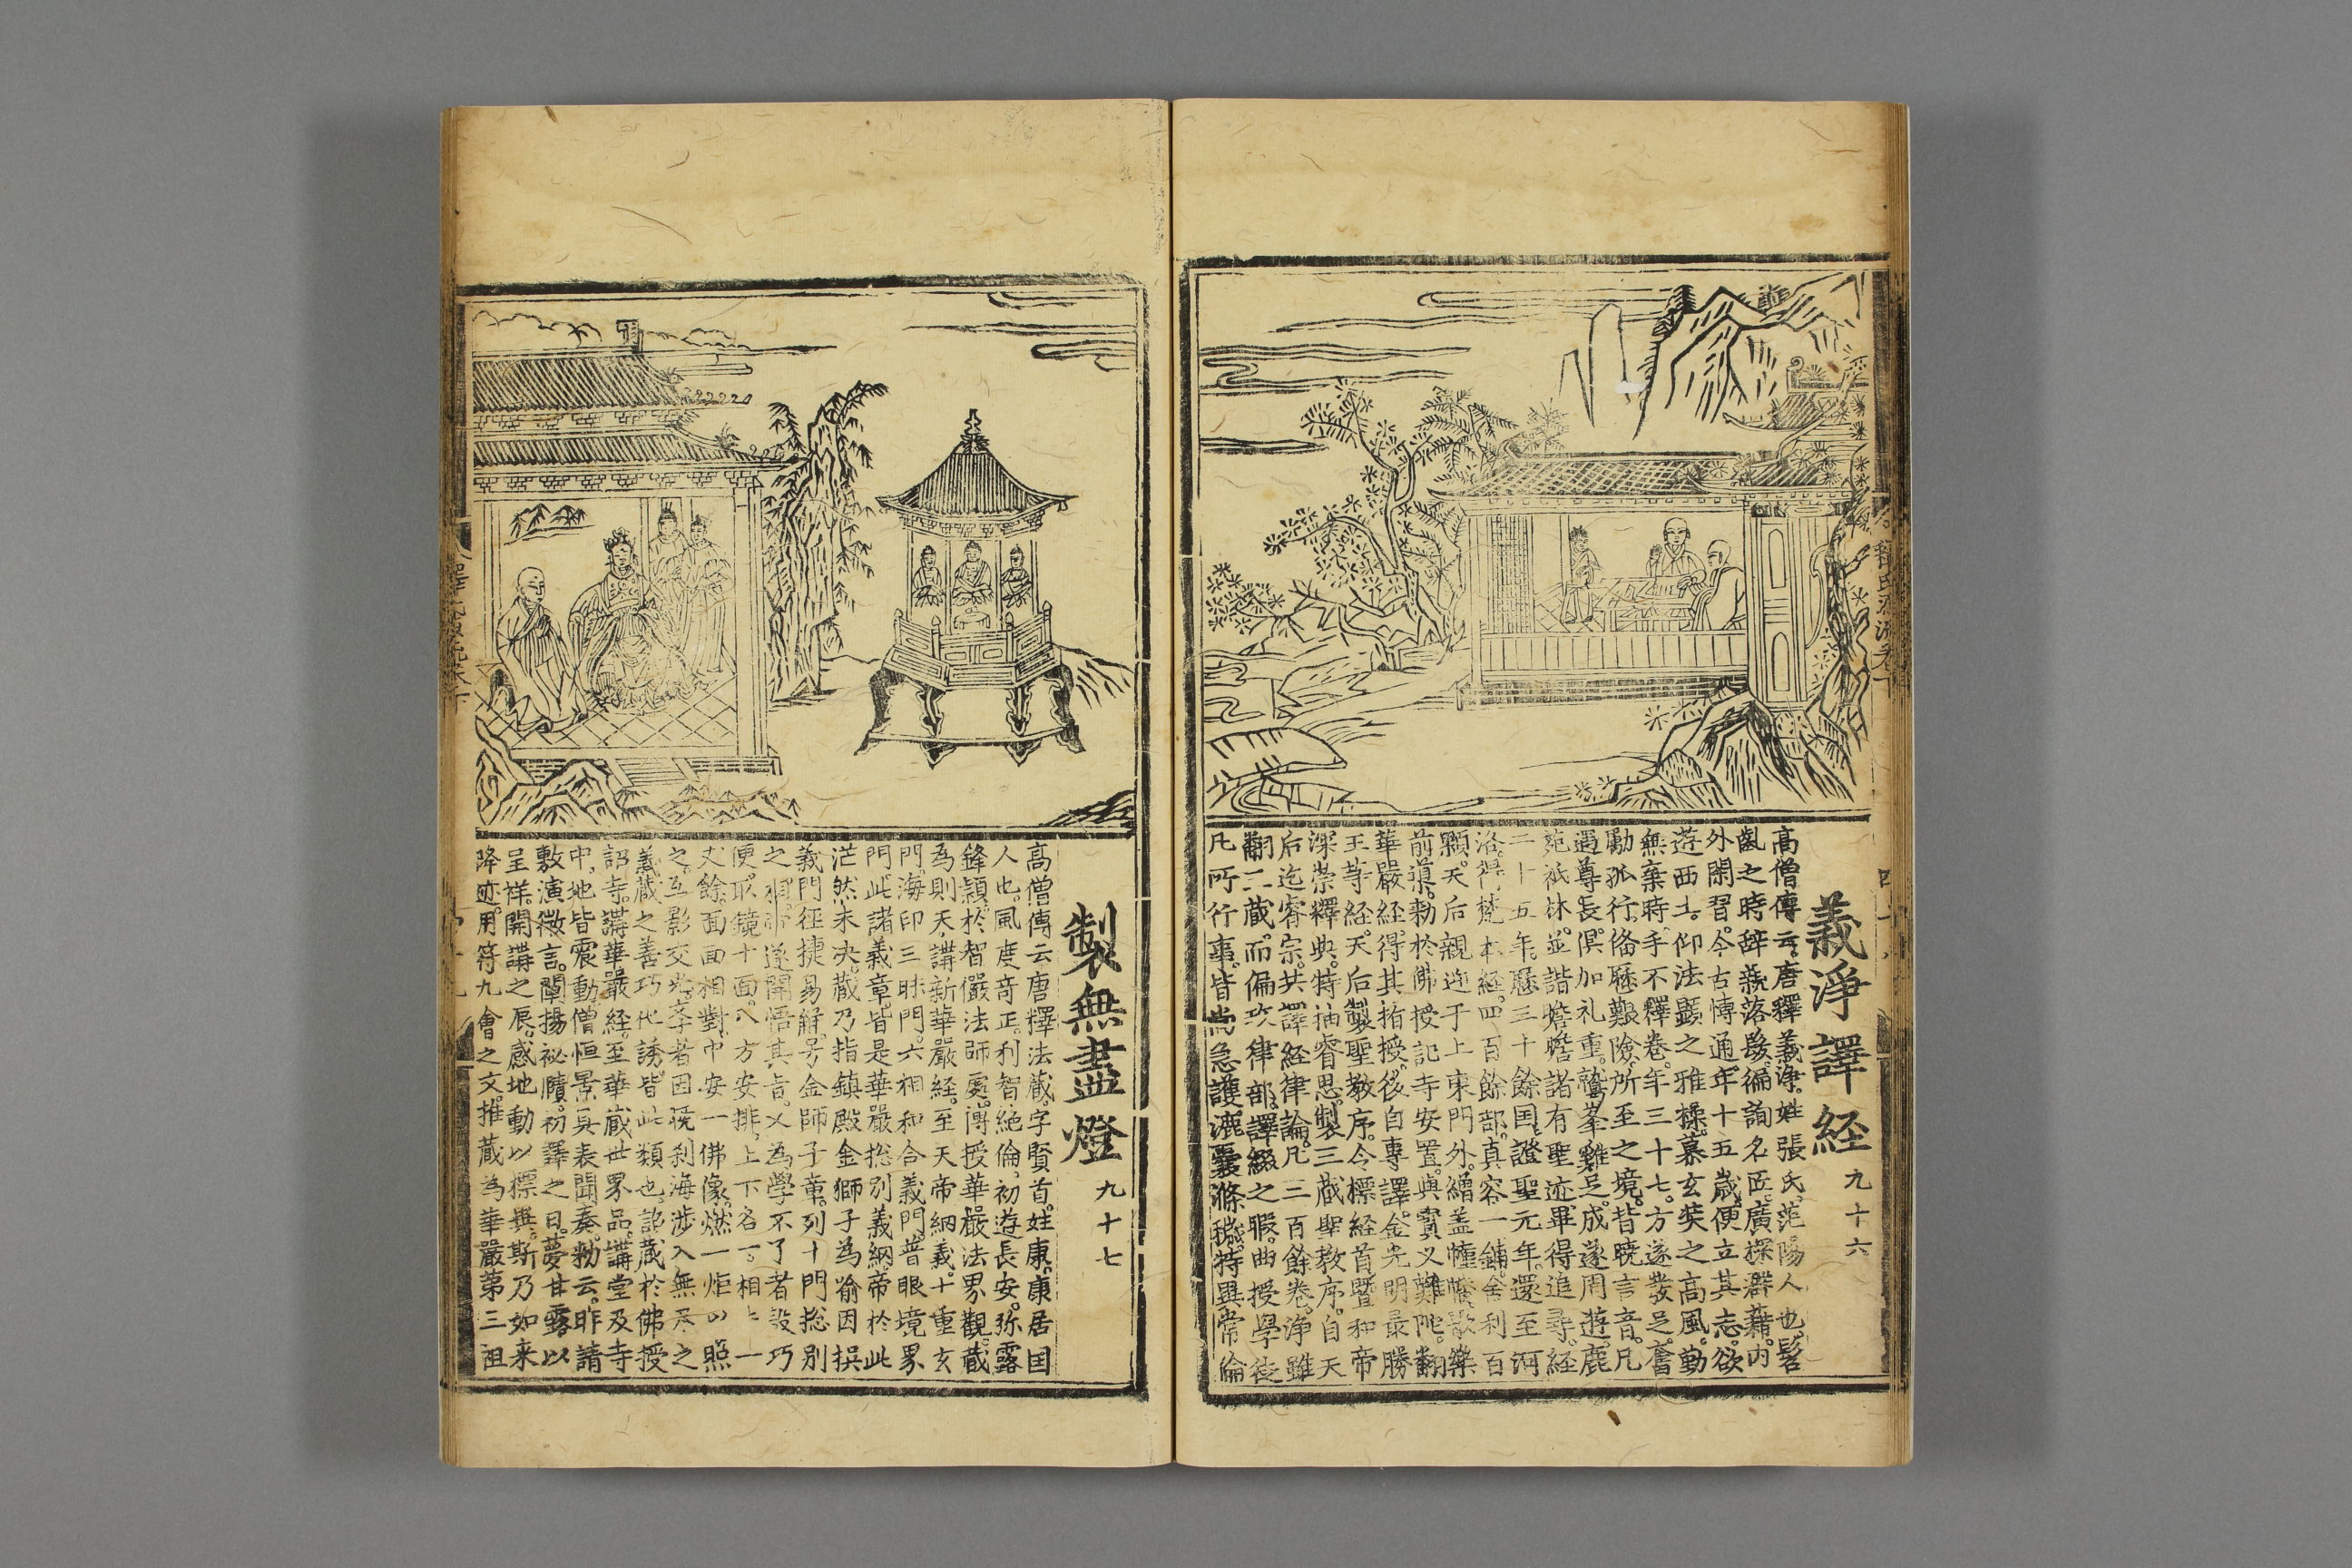 義淨譯経 九十六
高僧傳云。唐釋義淨。姓張氏。范陽人也。髫
齔之時。辞親落髮。徧詢名匠。廣探群藉。內
外閑習。今古愽通。年十五歲。便立其志。欲
遊西土。仰法顯之雅操。慕玄奘之高風。勤
無棄時。手不釋卷。年三十七。方遂發足。奮
勵孤行。偹歷艱險。所至之境。皆曉言音。凡
遇尊長。俱加礼重。鷲峯雞足。成遂周遊。鹿
苑祇林。並諧瞻瞻諸有聖迹。畢得追尋。経
二十五年。歷三十餘囯。證聖元年。還至河
洛。得梵本経。四百餘部。真容一鋪。舍利百
顆。天后親迎于上東門外。繒盖幢幡歌樂
前導。勑於佛授記寺安置。與實叉難陀。翻
華嚴経。得其指授。後自專譯。金光明最勝
王等経。天后製聖教序。令標経首。暨和帝
深崇釋典。特抽睿思。製三藏聖教序。自天
后迄睿宗。共譯経律論。凡二百餘卷。淨雖
翻三藏。而偏攻律部。譯綴之暇。曲授學徒
凡所行事。皆尚急護。漉囊滌穢。特異常倫
製無盡燈 九十七
高僧傳云唐釋法藏。字賢首。姓康。康居囯
人也。風度竒正。利智絶倫。初遊長安。弥露
鋒頴。於智儼法師處。傳授華嚴法界觀。藏
為則天。講新華嚴経。至天帝納義。十重玄
門。海印三昧門。六相和合義門。普眼境界
門。此諸義章。皆是華嚴捴別義綱。帝於此
茫然未决。藏乃指鎮殿金獅子為喻因撰
義門徑捷易解。号金師子章。列十門捴別
之相。帝遂開悟其旨。又為學不了者設巧
便。取鏡十面。八方安排。上下各一。相去一
丈餘。面面相對。中安一佛像。燃一炬以照
之。互影交光。孝者因曉刹海涉入無尽之
義藏之善巧化誘。皆此類也。詔藏於佛授
記寺。講華嚴経。至華藏世界品。講堂及寺
中。地皆震動。僧恒景具表聞奏。勑云。昨請
敷演微言。闡揚祕賾。初譯之日。夢甘露以
呈祥。開講之辰。感地動以標異。斯乃如来
降迹。用符九會之文。推藏為華嚴第三祖